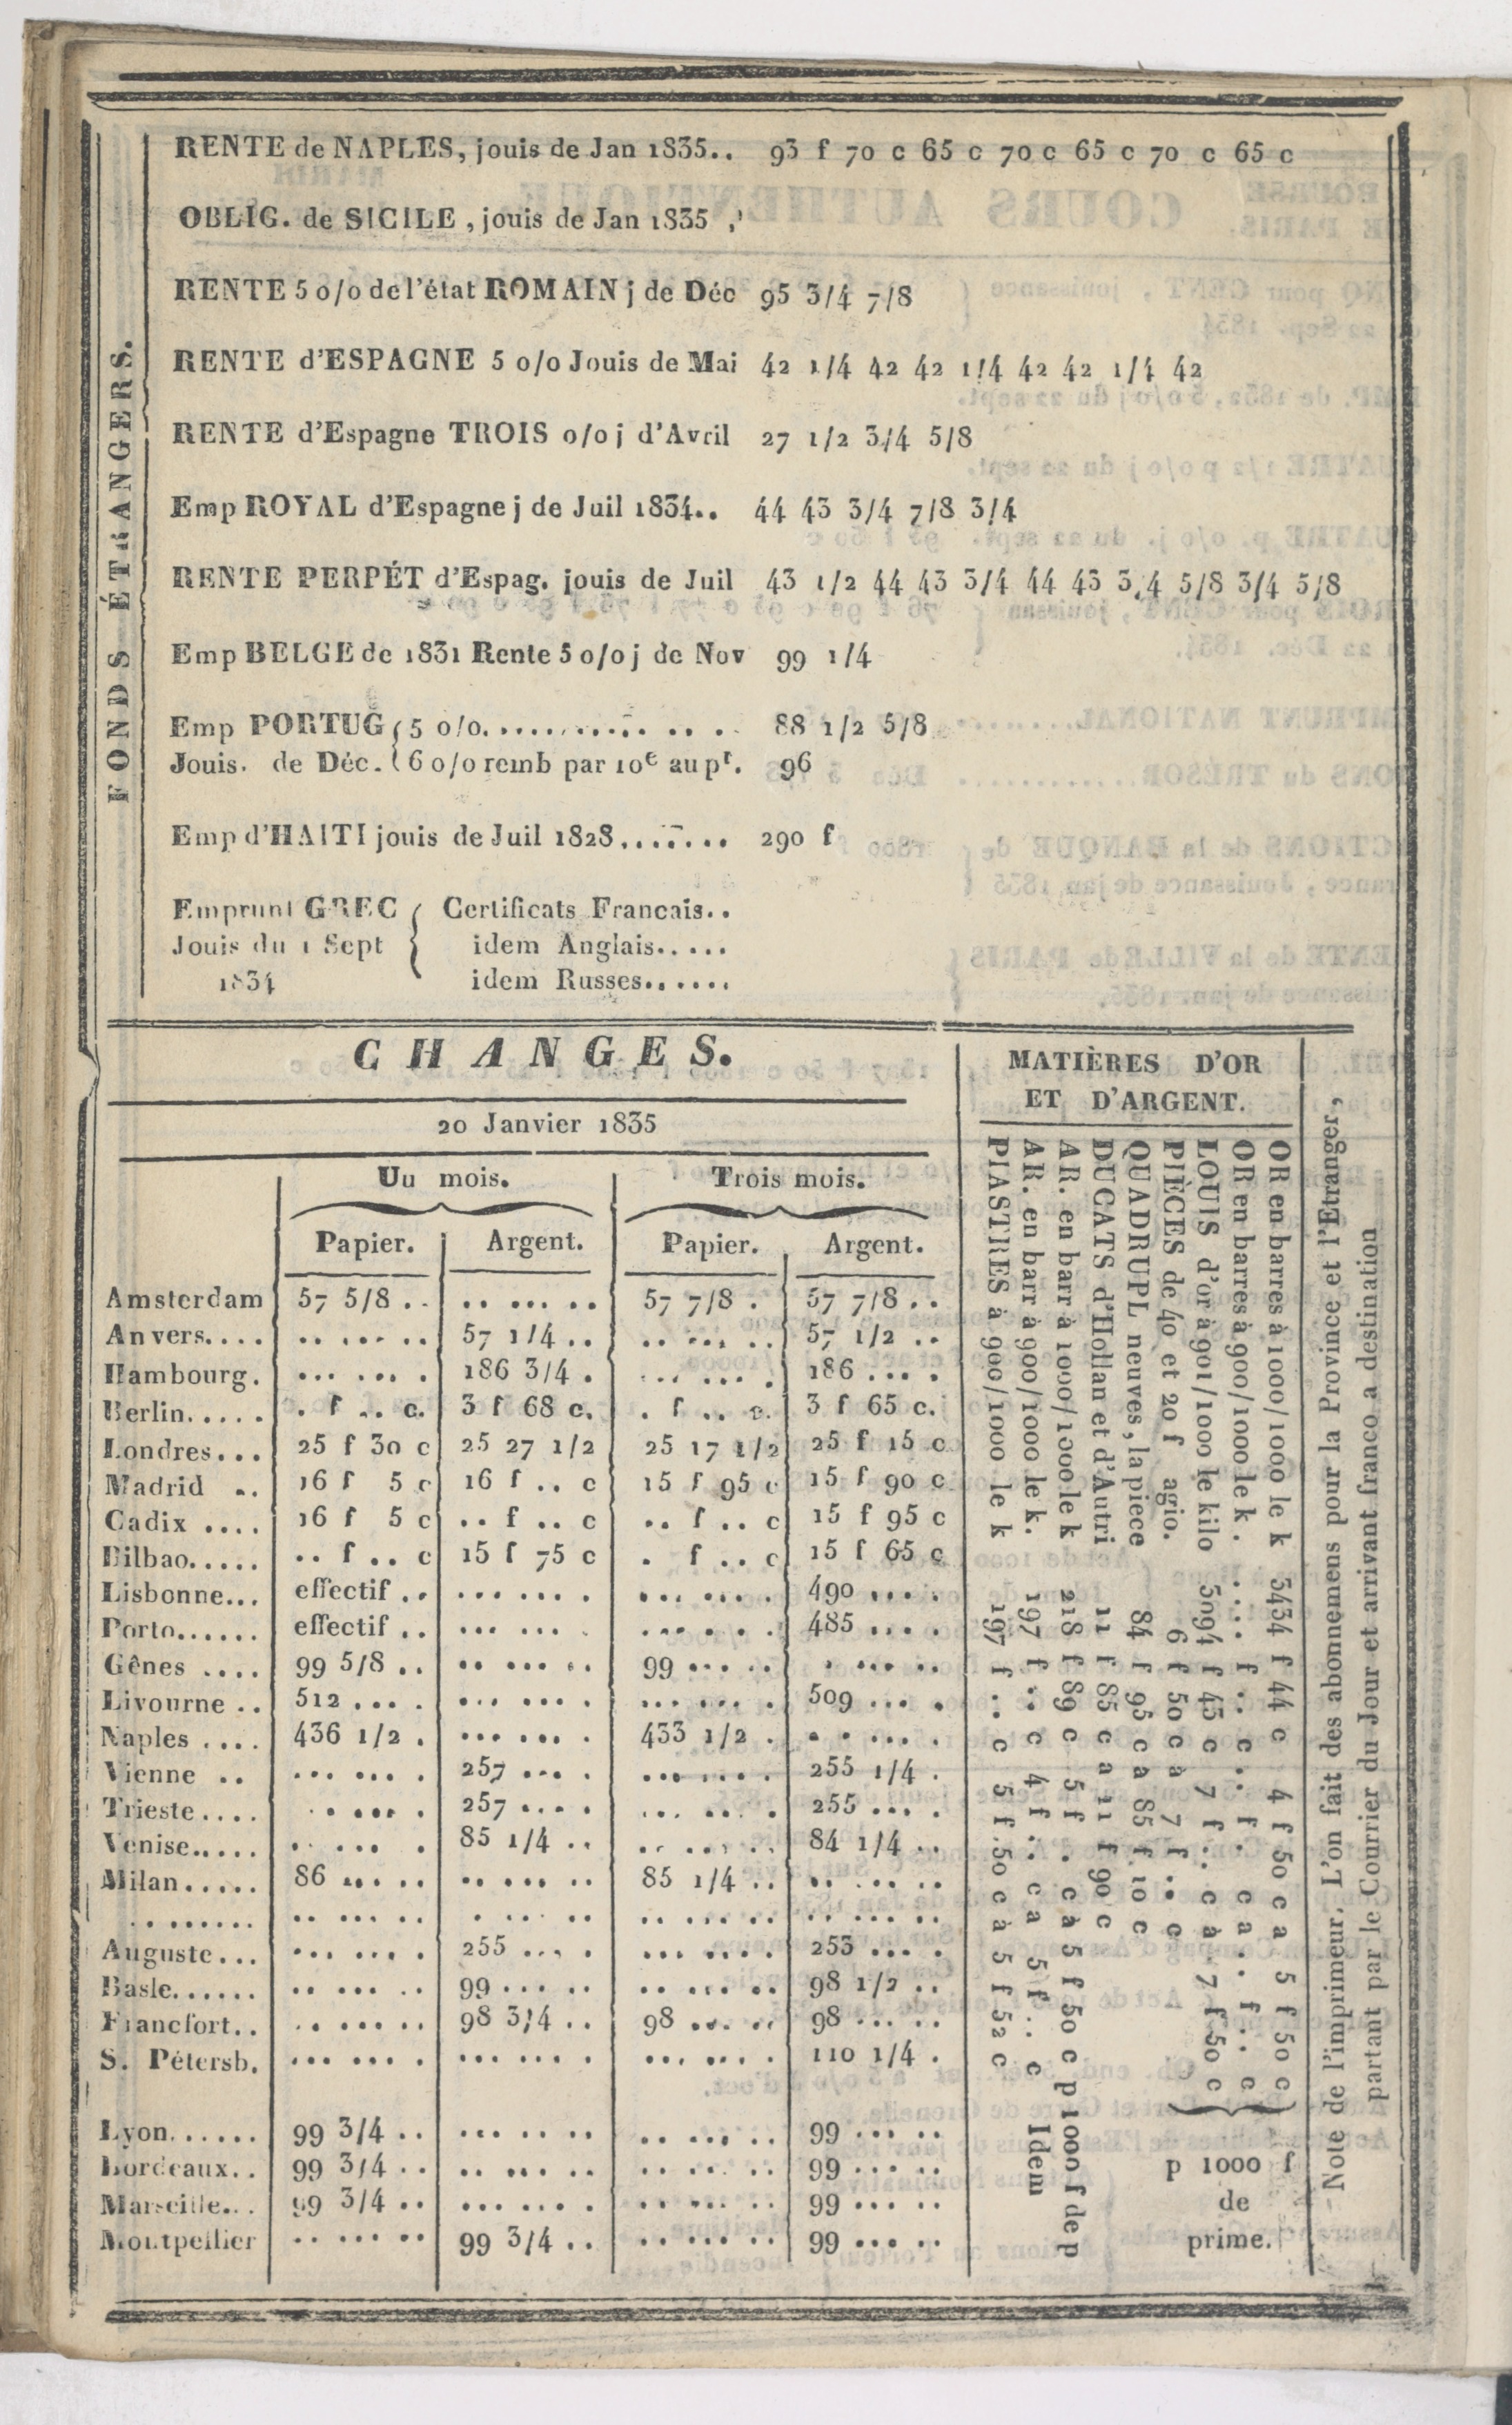 FONDS ÉTRANGERS.
RENTE de NAPLES, jouis de Jan 1835.. 93 f 70 c 65 c 70 c 65 c 70 c 65 c
OBLIG. de SICILE , jouis de Jan 1835 ,
RENTE 5 o/o de l'état ROMAIN j de Déc 95 3/4 7/8
RENTE d'ESPAGNE 5 o/o Jouis de Mai 42 1/4 42 42 1/4 42 42 1/4 42
RENTE d'Espagne TROIS o/o j d'Avril 27 1/2 3/4 5/8
Emp ROYAL d'Espagne j de Juil 1834.. 44 43 3/4 7/8 3/4
RENTE PERPÉT d'Espag. jouis de Juil 43 1/2 44 43 3/4 44 43 3/4 5/8 3/4 5/8
Emp BELGE de 1831 Rente 5 o/o j de Nov 99 1/4
Emp PORTUG { 5 o/o. .............. 88 1/2 5/8
Jouis. de Déc. { 6 o/o remb par 10e au pr. 96
Emp d'HAITI jouis de Juil 1828........ 290 f
Emprunt GREC { Certificats Francais..
Jouis du 1 Sept { idem Anglais.....
1834 idem Russes......
CHANGES.
20 Janvier 1835
Uu mois. Trois mois.
Papier. Argent. Papier. Argent.
Amsterdam 57 5/8 .. .. ... .. 57 7/8 . 57 7/8 ..
Anvers.... .. ... .. 57 1/4 .. .. ... .. 57 1/2 ..
Hambourg. ... ... . 186 3/4 . ... ... . 186 ... .
Berlin..... . f .. c. 3 f 68 c. . f .. c. 3 f 65 c.
Londres... 25 f 30 c 25 27 1/2 25 17 1/2 25 f 15 c
Madrid .. 16 f 5 c 16 f .. c 15 f 95 c 15 f 90 c
Cadix .... 16 f 5 c .. f .. c .. f .. c 15 f 95 c
Bilbao..... .. f .. c 15 f 75 c . f .. c 15 f 65 c
Lisbonne... effectif .. ... ... . ... ... . 490 ... .
Porto...... effectif .. ... ... . ... ... . 485 ... .
Gênes .... 99 5/8 .. .. ... .. 99 ... .. . ... ..
Livourne .. 512 ... . ... ... . ... ... . 509 ... .
Naples .... 436 1/2 . ... ... . 433 1/2 . . . ... .
Vienne .. ... ... . 257 ... . ... ... . 255 1/4 .
Trieste.... . .... . 257 ... . ... ... . 255 ... .
Venise..... .. ... . 85 1/4 .. .. ... .. 84 1/4 ..
Milan..... 86 ... .. .. ... .. 85 1/4 .. .. ... ..
........ .. ... .. . ... .. .. ... .. .. ... ..
Auguste... ... ... . 255 ... . ... ... . 253 ... .
Basle...... .. ... .. 99 ... .. .. ... .. 98 1/2 ..
Francfort.. .. ... .. 98 3/4 .. 98 ... .. 98 ... ..
S. Pétersb. ... ... . ... ... . ... ... . 110 1/4 .
Lyon...... 99 3/4 .. ... .. .. .. ... .. 99 ... ..
Bordeaux.. 99 3/4 .. .. ... .. .. ... .. 99 ... ..
Marseille... 99 3/4 .. ... ... . .. ... .. 99 ... ..
Montpellier .. ... .. 99 3/4 .. .. ... .. 99 ... ..
MATIÈRES D'OR
ET D'ARGENT.
OR en barres à 1000/1000 le k 3434 f 44 c 4 f 50 c a 5 f 50 c
OR en barres à 900/1000 le k. .... f .. c .. f . c a .. f .. c
LOUIS d'or à 901/1000 le kilo 3094 f 43 c 7 f .. c à 7 f 50 c
PIÈCES de 40 et 20 f agio. 6 f 50 c à 7 f .. c
QUADRUPL neuves, la piece 84 f 95 c a 85 f 10 c
DUCATS d'Hollan et d'Autri 11 f 85 c a 11 f 90 c
AR. en barr à 1000/1000 le k 218 f 89 c 5 f . c à 5 f 50 c p 1000 f de p
AR. en barr à 900/1000 le k. 197 f .. c 4 f .. c a 5 f .. c Idem
PIASTRES à 900/1000 le k 197 f .. c 5 f 50 c à 5 f 52 c
p 1000 f
de
prime.
Note de l'imprimeur. L'on fait des abonnemens pour la Province et l'Etranger,
partant par le Courrier du Jour et arrivant franco a destination